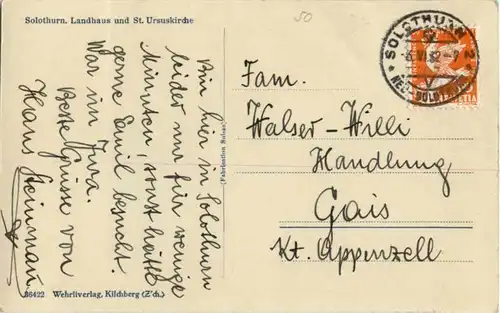 Solothurn. Landhaus und St. Ursuskirche
50
Bin hier in Solothurn
leider nur für wenige
Minuten, sonst hätte
gerne Emil besucht.
War im Jura.
Beste Grüsse von
Hans
(Fabrication Suisse)
SOLOTHURN 2
VI 32
HELVETIA
Fam.
Walser-Willi
Handlung
Gais
Kt. Appenzell
36422 Wehrliverlag, Kilchberg (Z'ch.)